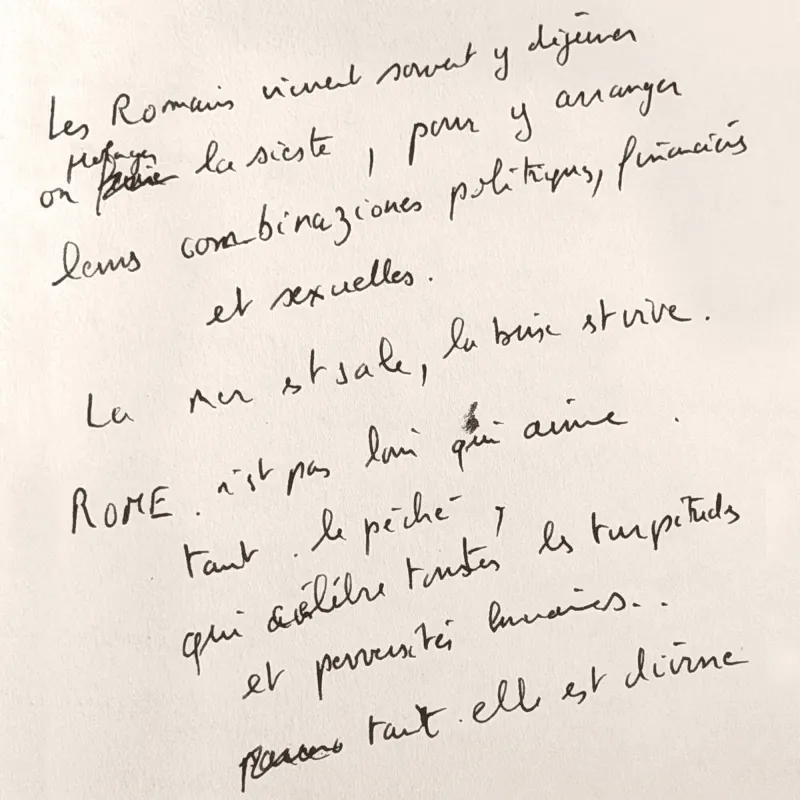 Les Romains viennent souvent y déjeuner
ou partager la sieste, pour y arranger
leurs combinaziones politiques, financières
et sexuelles.
La mer est sale, la brise est vive.
ROME. n'est pas loin qui aime.
tant. le péché,
qui célèbre toutes les turpitudes
et perversités humaines...
tant. elle est divine